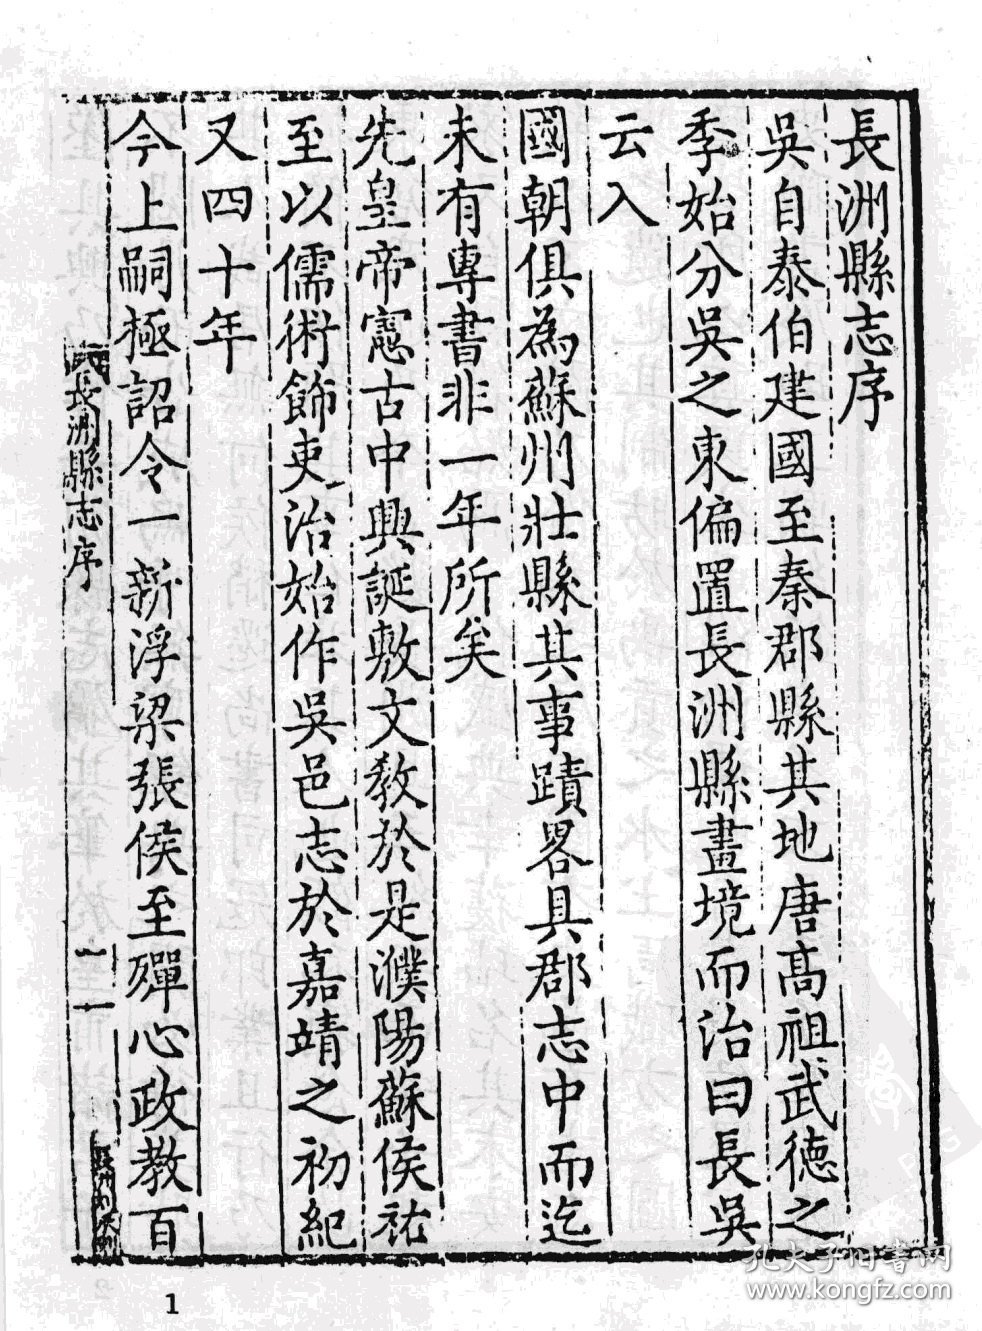 長洲縣志序
吳自泰伯建國至秦郡縣其地唐高祖武德之
季始分吳之東偏置長洲縣畫境而治曰長吳
云入
國朝俱為蘇州壯縣其事蹟畧具郡志中而迄
未有專書非一年所矣
先皇帝憲古中興誕敷文教於是濮陽蘇侯祐
至以儒術飾吏治始作吳邑志於嘉靖之初紀
又四十年
今上嗣極詔令一新浮梁張侯至殫心政教百
長洲縣志序
一
1
孔夫子旧书网
www.kongfz.com